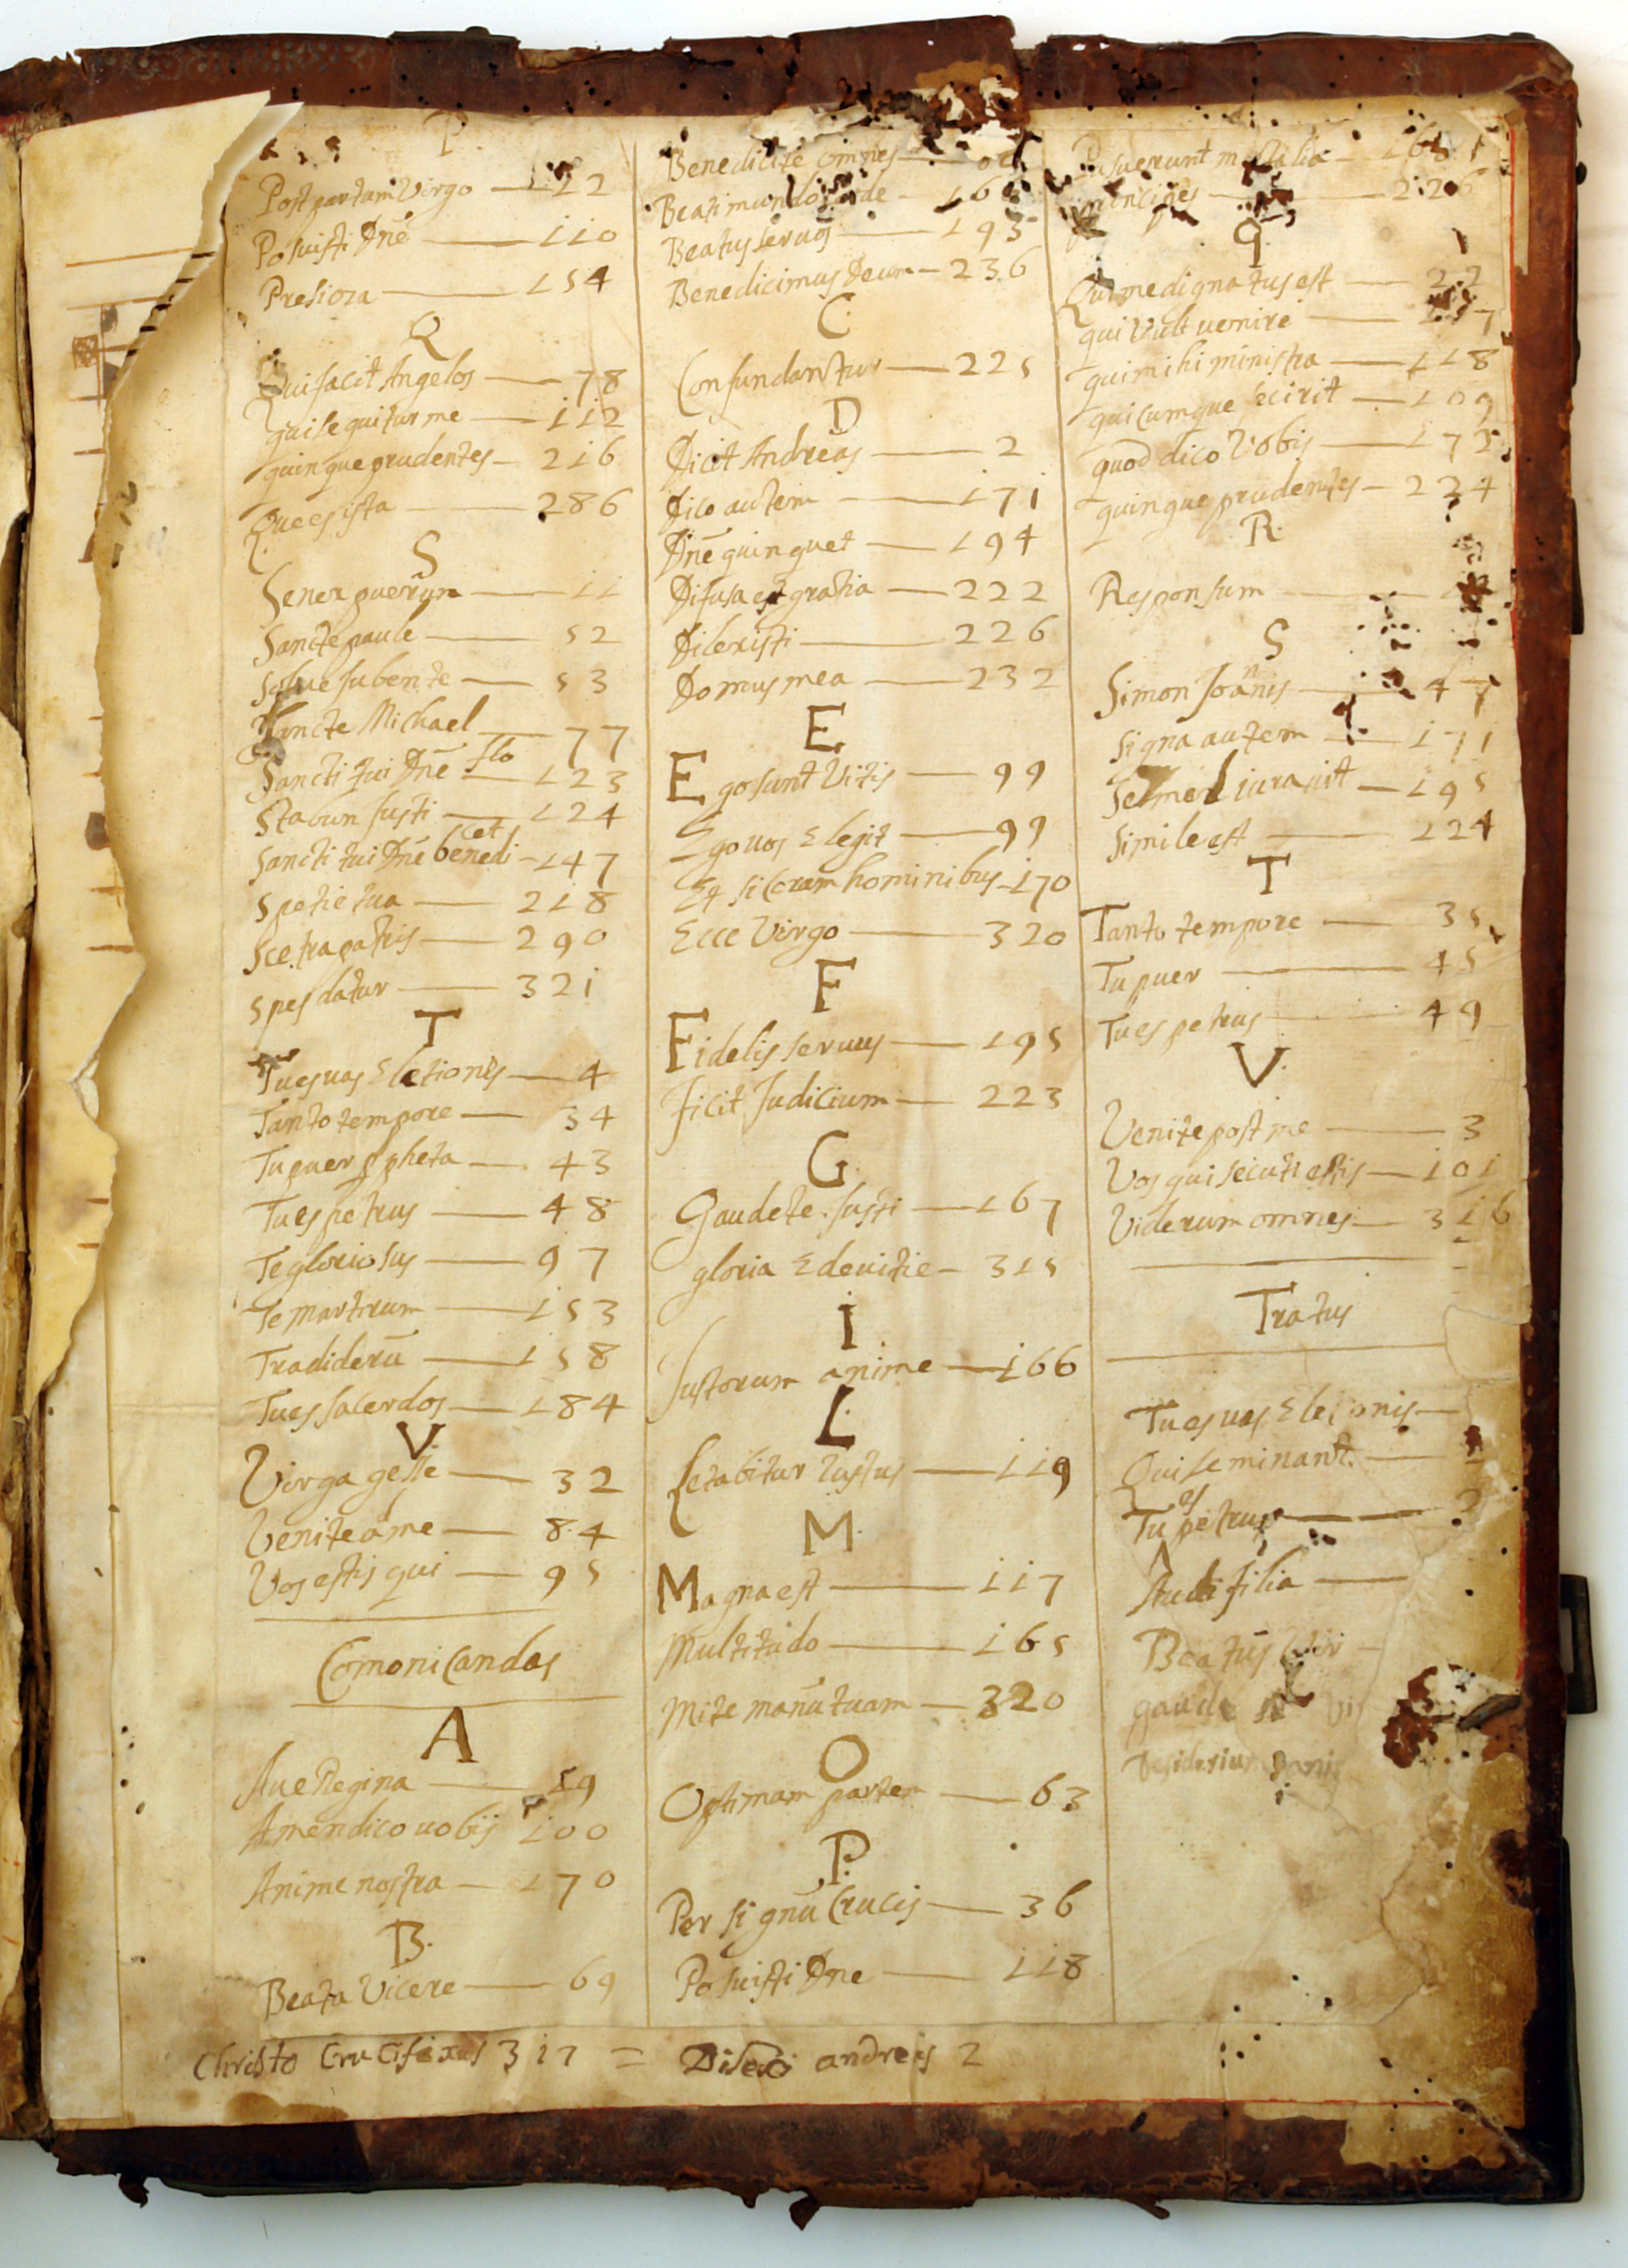 P.
Post partam Virgo — 22
Posuisti Dñe — 110
Presiosa — 154
Q
Qui facit Angelos — 78
qui sequitur me — 112
quinque prudentes — 216
Que es ista — 286
S
Senex puerum — 11
Sancte paule — 52
Solue Iubente — 53
Sancte Michael — 77
Sancti tui Dñe flo — 123
Stabun Iusti — 124
Sancti tui Dñe benedicet — 147
Spetie tua — 218
Sce.tra patris — 290
Spes datur — 321
T
Tu es uas Eletionis — 4
Tanto tempore — 34
Tu puer ppheta — 43
Tu es petrus — 48
Te gloriosus — 97
Te martirum — 153
Tradiderũ — 158
Tu es sacerdos — 184
V
Virga gesse — 32
Venite ame — 84
Vos estis qui — 95
Comonicandas
A
Aue Regina — 19
Amen dico uobis 100
Anime nostra — 170
B.
Beata Vicere — 69
Benedicite omnes —
Beati mundo corde —
Beatus seruos — 195
Benedicimus Deum — 236
C
Confundantur — 225
D
Dicit Andreas — 2
Dico autem — 171
Dñe quinquet — 194
Difusa est gratia — 222
Dilexisti — 226
Domus mea — 232
E.
Ego sunt Vitis — 99
Ego uos Elegit — 99
Et si coram hominibus — 170
Ecce Virgo — 320
F
Fidelis seruus — 195
ficit Iudicium — 223
G
Gaudete Iusti — 167
gloria E deuitie — 315
I
Iustorum anime — 166
L.
Letabitur Iustus — 119
M.
Magna est — 117
Multitudo — 165
Mite manũ tuam — 320
O
Optimam partem — 63
P.
Per signũ Crucis — 36
Posuisti Dne — 118
Posuerunt mortalia —
principes — 226
q
Qui me dignatus est — 22
qui Vult uenire —
qui mihi ministra — 118
quicumque fecirit — 169
quod dico Vobis — 172
quinque prudentes — 224
R.
Responsum —
S
Simon Ioanis — 47
Signa autem — 171
Semel iurauit — 195
Simile est — 224
T
Tanto tempore — 35
Tu puer — 45
Tu es petrus — 49
V.
Venite post me — 3
Vos qui secuti estis — 101
Viderum omnes — 316
Tratus
Tu es uas Elecionis —
Qui seminant. —
Tu es petrus —
Audi filia —
Beatus Vir —
gaude
Desiderium
Christo Crucifixus 317 = andreas 2